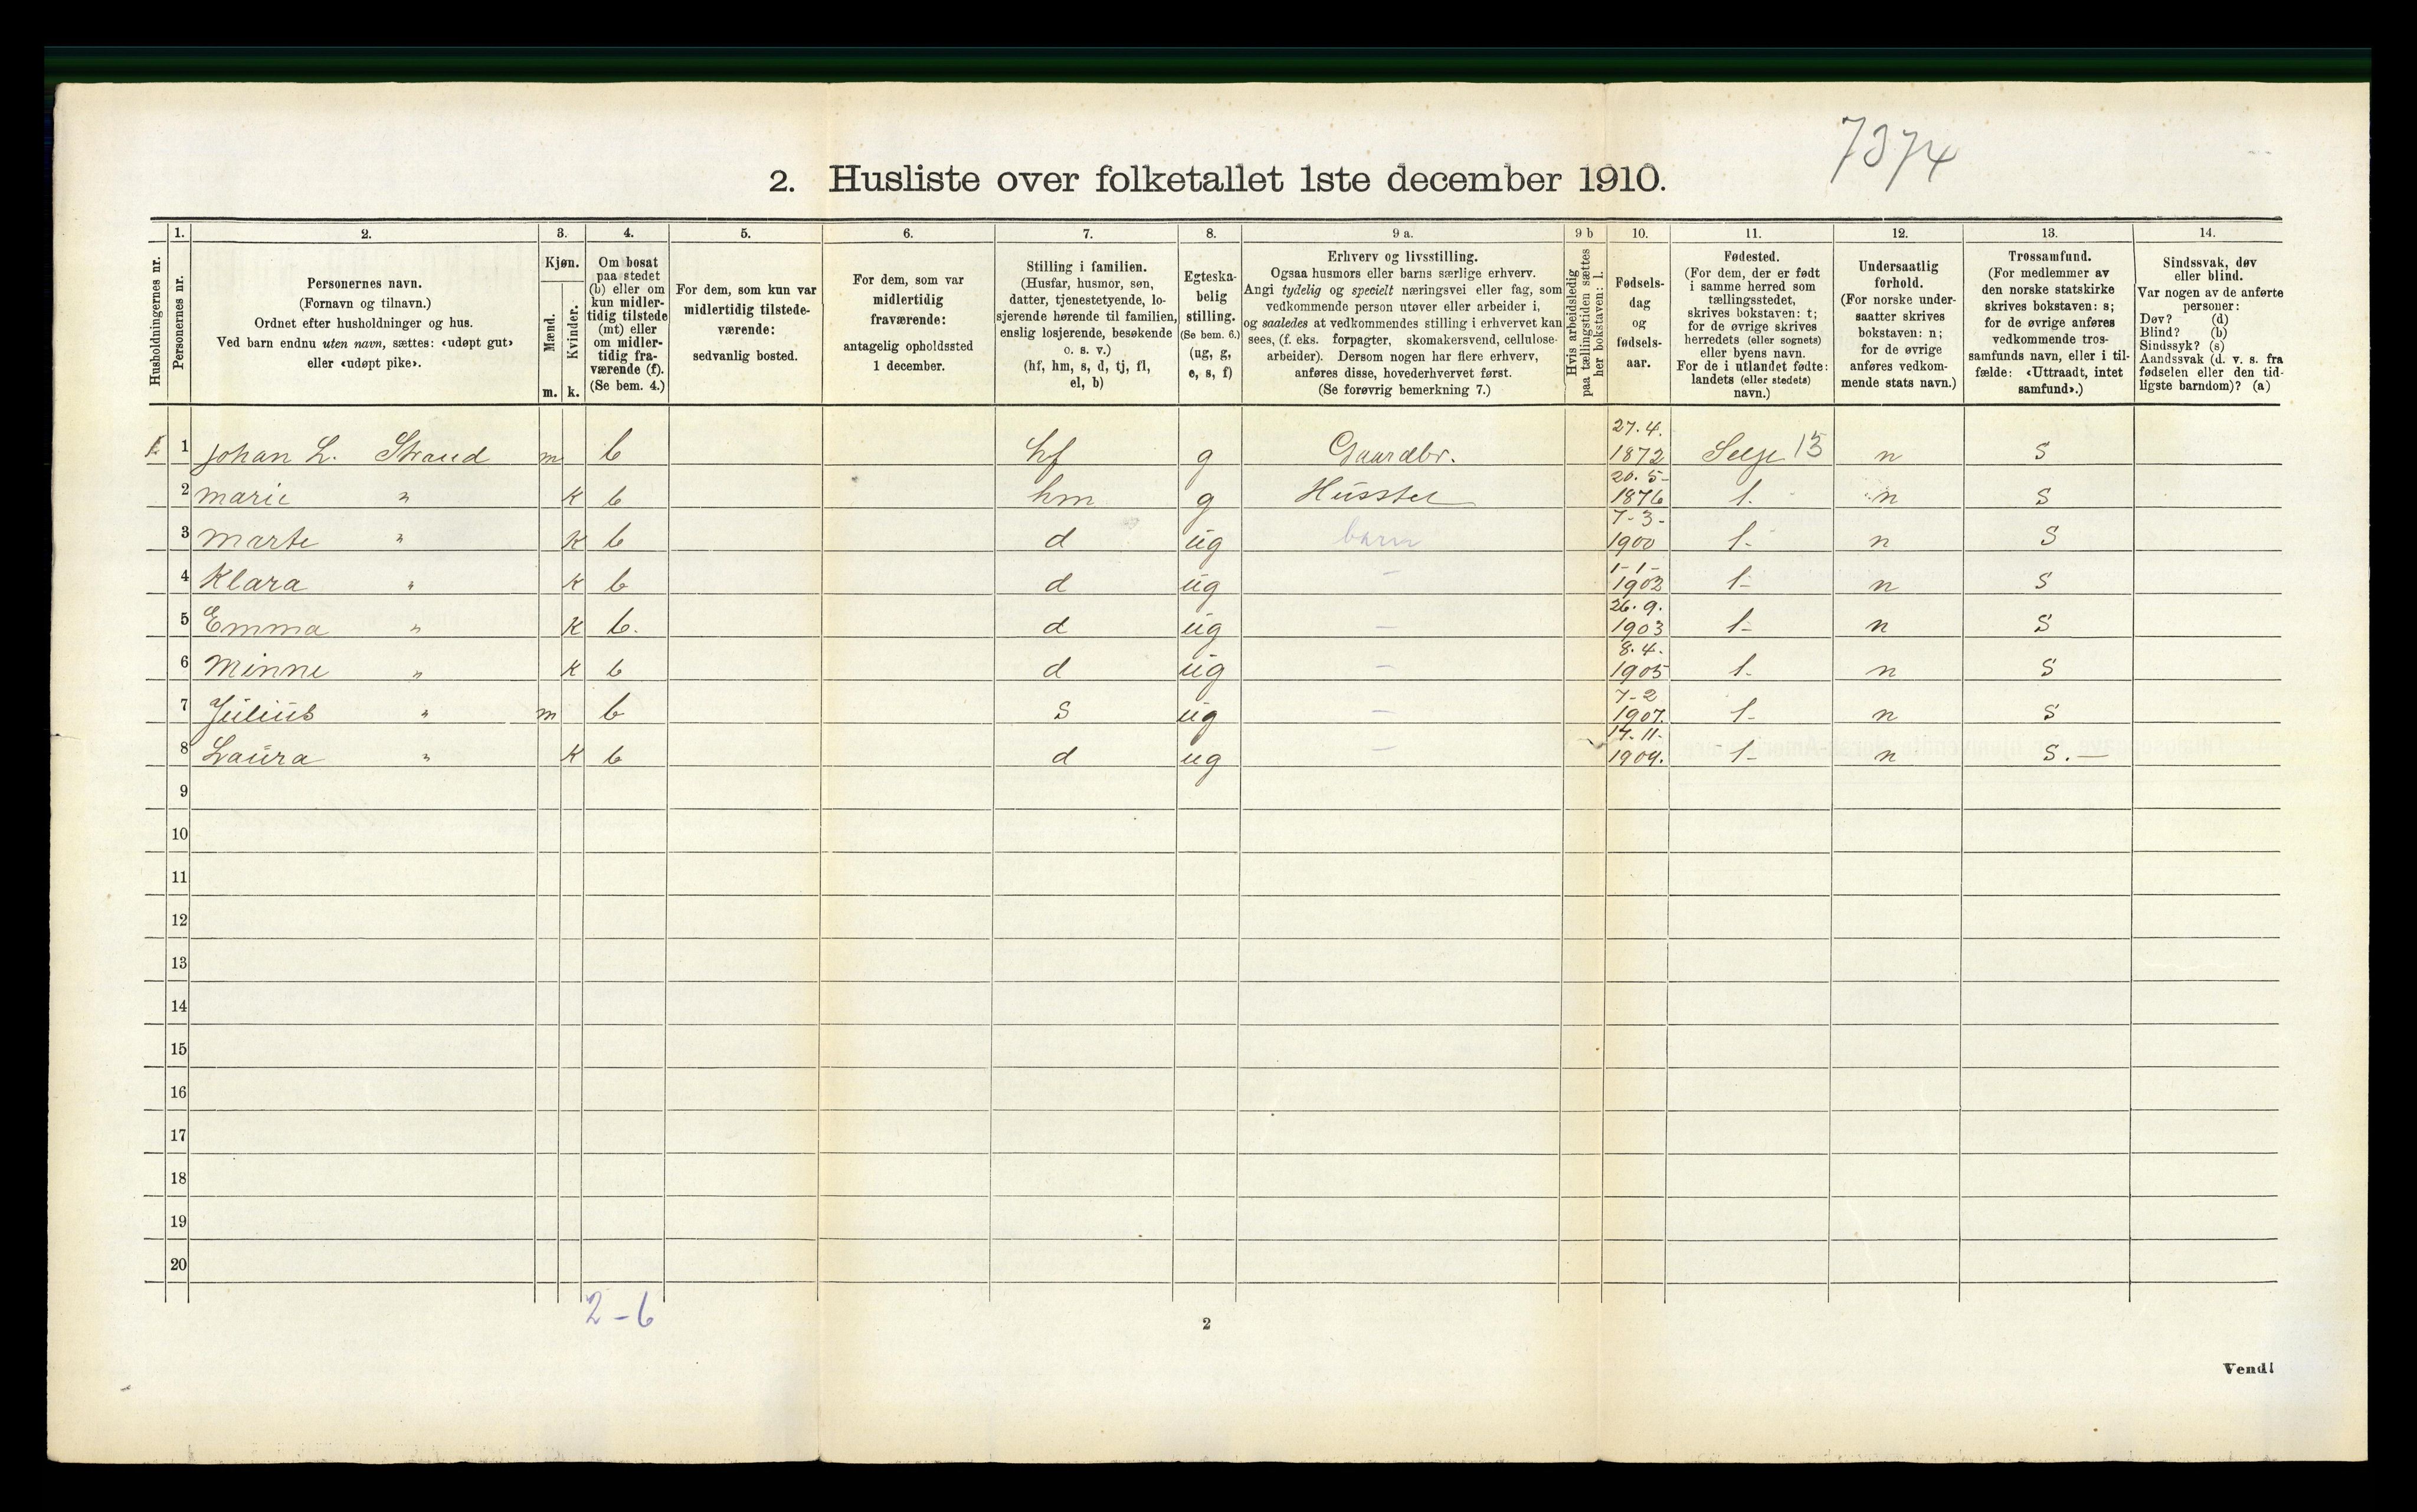 7374
2. Husliste over folketallet 1ste december 1910.
Husholdningernes nr.
1.
Personernes nr.
2.
Personernes navn.
(Fornavn og tilnavn.)
Ordnet efter husholdninger og hus.
Ved barn endnu uten navn, sættes: «udøpt gut»
eller «udøpt pike».
3.
Kjøn.
Mænd.
Kvinder.
m. k.
4.
Om bosat
paa stedet
(b) eller om
kun midler-
tidig tilstede
(mt) eller
om midler-
tidig fra-
værende (f).
(Se bem. 4.)
5.
For dem, som kun var
midlertidig tilstede-
værende:
sedvanlig bosted.
6.
For dem, som var
midlertidig
fraværende:
antagelig opholdssted
1 december.
7.
Stilling i familien.
(Husfar, husmor, søn,
datter, tjenestetyende, lo-
sjerende hørende til familien,
enslig losjerende, besøkende
o. s. v.)
(hf, hm, s, d, tj, fl,
el, b)
8.
Egteska-
belig
stilling.
(Se bem. 6.)
(ug, g,
e, s, f)
9 a.
Erhverv og livsstilling.
Ogsaa husmors eller barns særlige erhverv.
Angi tydelig og specielt næringsvei eller fag, som
vedkommende person utøver eller arbeider i,
og saaledes at vedkommendes stilling i erhvervet kan
sees, (f. eks. forpagter, skomakersvend, cellulose-
arbeider). Dersom nogen har flere erhverv,
anføres disse, hovederhvervet først.
(Se forøvrig bemerkning 7.)
9 b
Hvis arbeidsledig
paa tællingstiden sættes
her bokstaven: l.
10.
Fødsels-
dag
og
fødsels-
aar.
11.
Fødested.
(For dem, der er født
i samme herred som
tællingsstedet,
skrives bokstaven: t;
for de øvrige skrives
herredets (eller sognets)
eller byens navn.
For de i utlandet fødte:
landets (eller stedets)
navn.)
12.
Undersaatlig
forhold.
(For norske under-
saatter skrives
bokstaven: n;
for de øvrige
anføres vedkom-
mende stats navn.)
13.
Trossamfund.
(For medlemmer av
den norske statskirke
skrives bokstaven: s;
for de øvrige anføres
vedkommende tros-
samfunds navn, eller i til-
fælde: «Uttraadt, intet
samfund».)
14.
Sindssvak, døv
eller blind.
Var nogen av de anførte
personer:
Døv? (d)
Blind? (b)
Sindssyk? (s)
Aandssvak (d. v. s. fra
fødselen eller den tid-
ligste barndom)? (a)
1 Johan L. Strand m b hf g Gaardbr. 27.4. 1872 Selje 13 n S
2 Marie " K b hm g Husstel 20.5- 1876 n S
3 Marte " K b d ug barn 7-3- 1900 n S
4 Klara " K b d ug - 1-1- 1902 n S
5 Emma " K b. d ug - 26.9. 1903 n S
6 Minne " K b d ug - 8.4. 1905 n S
7 Julius " m b S ug - 7-2 1907. n S
8 Laura " K b d ug - 14.11- 1909. n S.-
9
10
11
12
13
14
15
16
17
18
19
20
2-6
2
Vend!